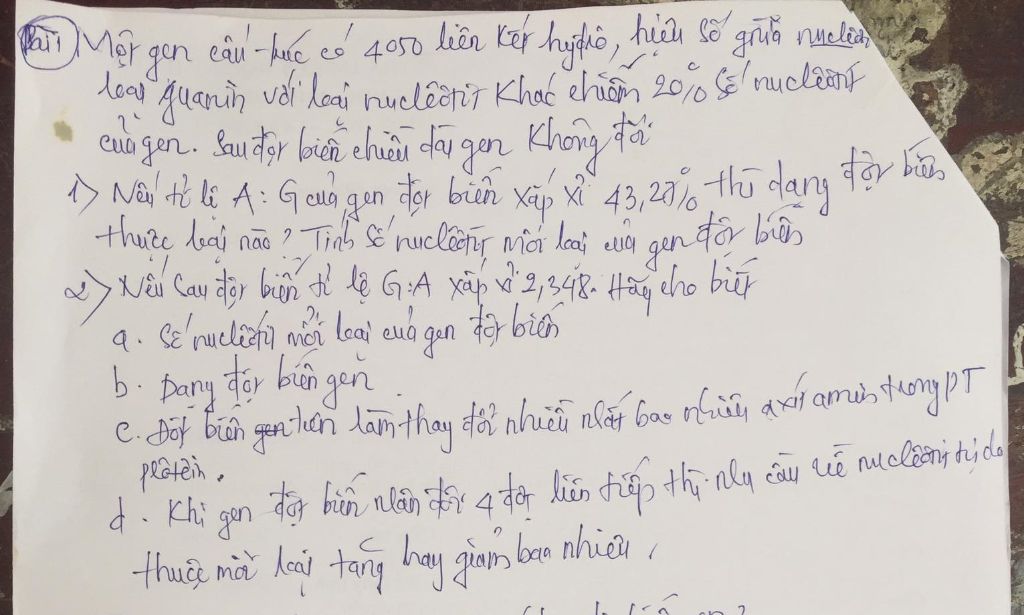 Bài 1 Một gen cấu trúc có 4050 liên kết hyđrô, hiệu số giữa nuclêôtit
loại guanin với loại nuclêôtit khác chiếm 20% số nuclêôtit
của gen. Sau đột biến chiều dài gen không đổi
1> Nếu tỉ lệ A : G của gen đột biến xấp xỉ 43,27% thì dạng đột biến
thuộc loại nào? Tính số nuclêôtit mỗi loại của gen đột biến
2> Nếu sau đột biến tỉ lệ G:A xấp xỉ 2,348. Hãy cho biết
a. Số nuclêôtit mỗi loại của gen đột biến
b. Dạng đột biến gen
c. Đột biến gen trên làm thay đổi nhiều nhất bao nhiêu axit amin trong PT
prôtêin.
d. Khi gen đột biến nhân đôi 4 đợt liên tiếp thì nhu cầu về nuclêôtit tự do
thuộc mỗi loại tăng hay giảm bao nhiêu,